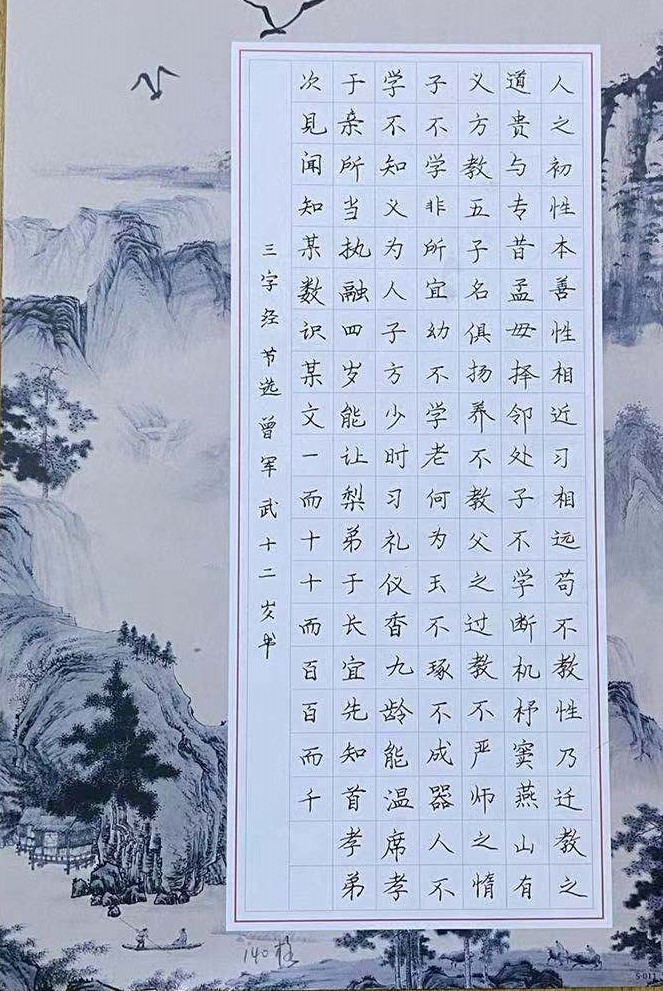 人之初性本善性相近习相远苟不教性乃迁教之
道贵与专昔孟母择邻处子不学断机杼窦燕山有
义方教五子名俱扬养不教父之过教不严师之惰
子不学非所宜幼不学老何为玉不琢不成器人不
学不知义为人子方少时习礼仪香九龄能温席孝
于亲所当执融四岁能让梨弟于长宜先知首孝弟
次见闻知某数识某文一而十十而百百而千
三字经节选曾军武十二岁书
140格
S-011